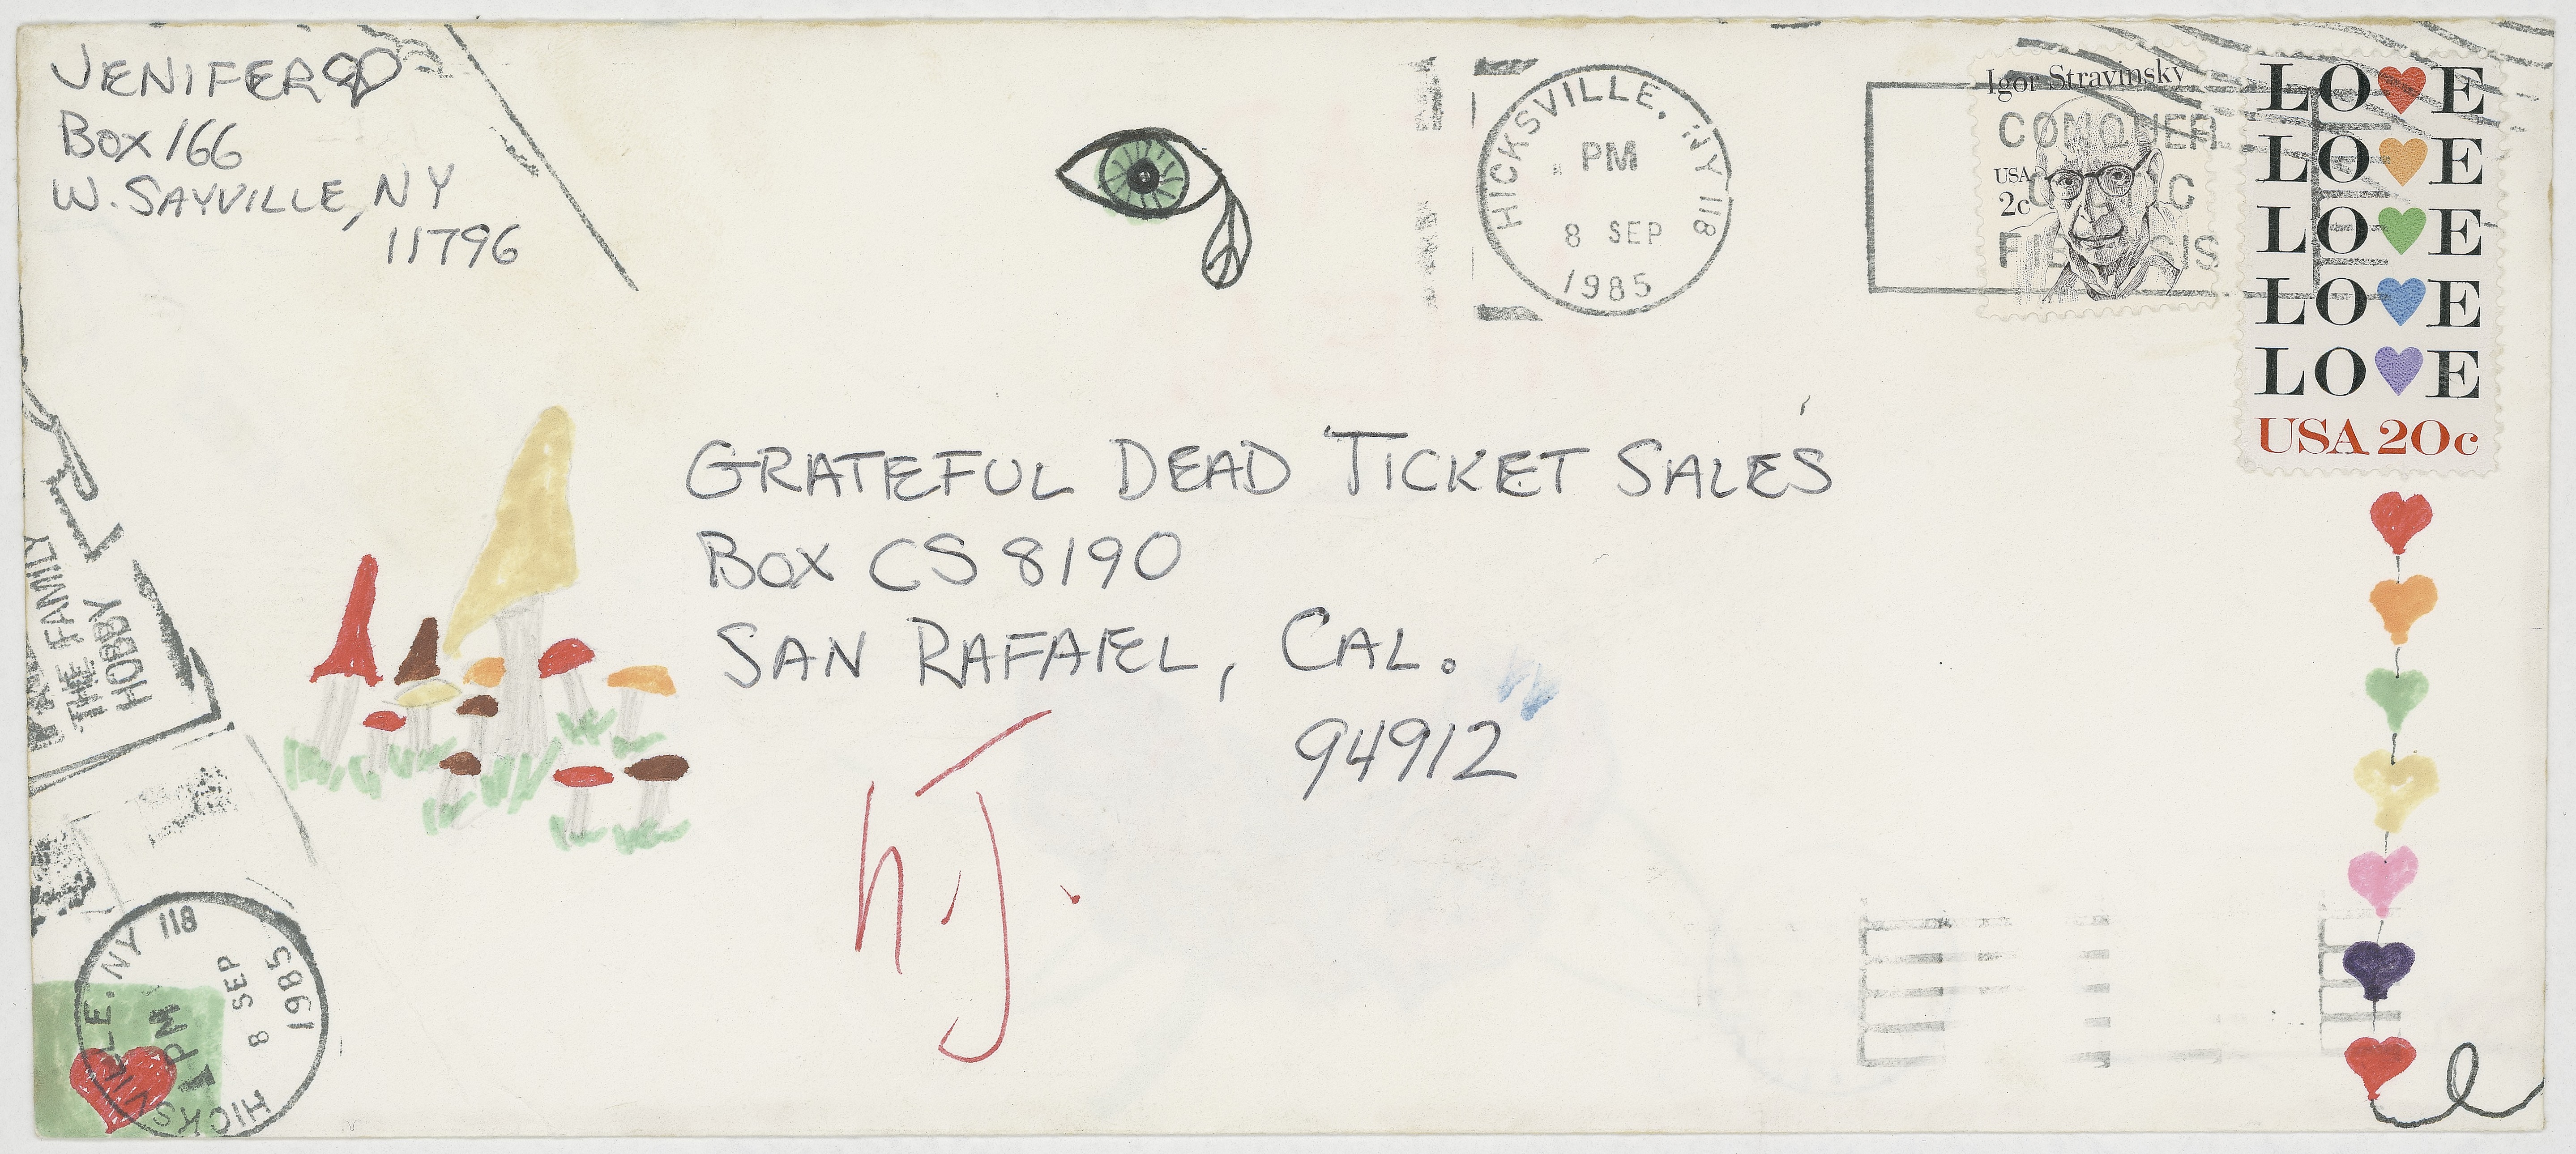 JENIFER
Box 166
W. SAYVILLE, NY
11796
HICKSVILLE, NY 118
PM
8 SEP
1985
Igor Stravinsky
USA
2c
CONQUER
CYSTIC
FIBROSIS
LO♥E
LO♥E
LO♥E
LO♥E
LO♥E
USA 20c
GRATEFUL DEAD TICKET SALES
Box CS 8190
SAN RAFAEL, CAL.
94912
THE FAMILY
HOBBY
HICKSVILLE, NY 118
PM
8 SEP
1985